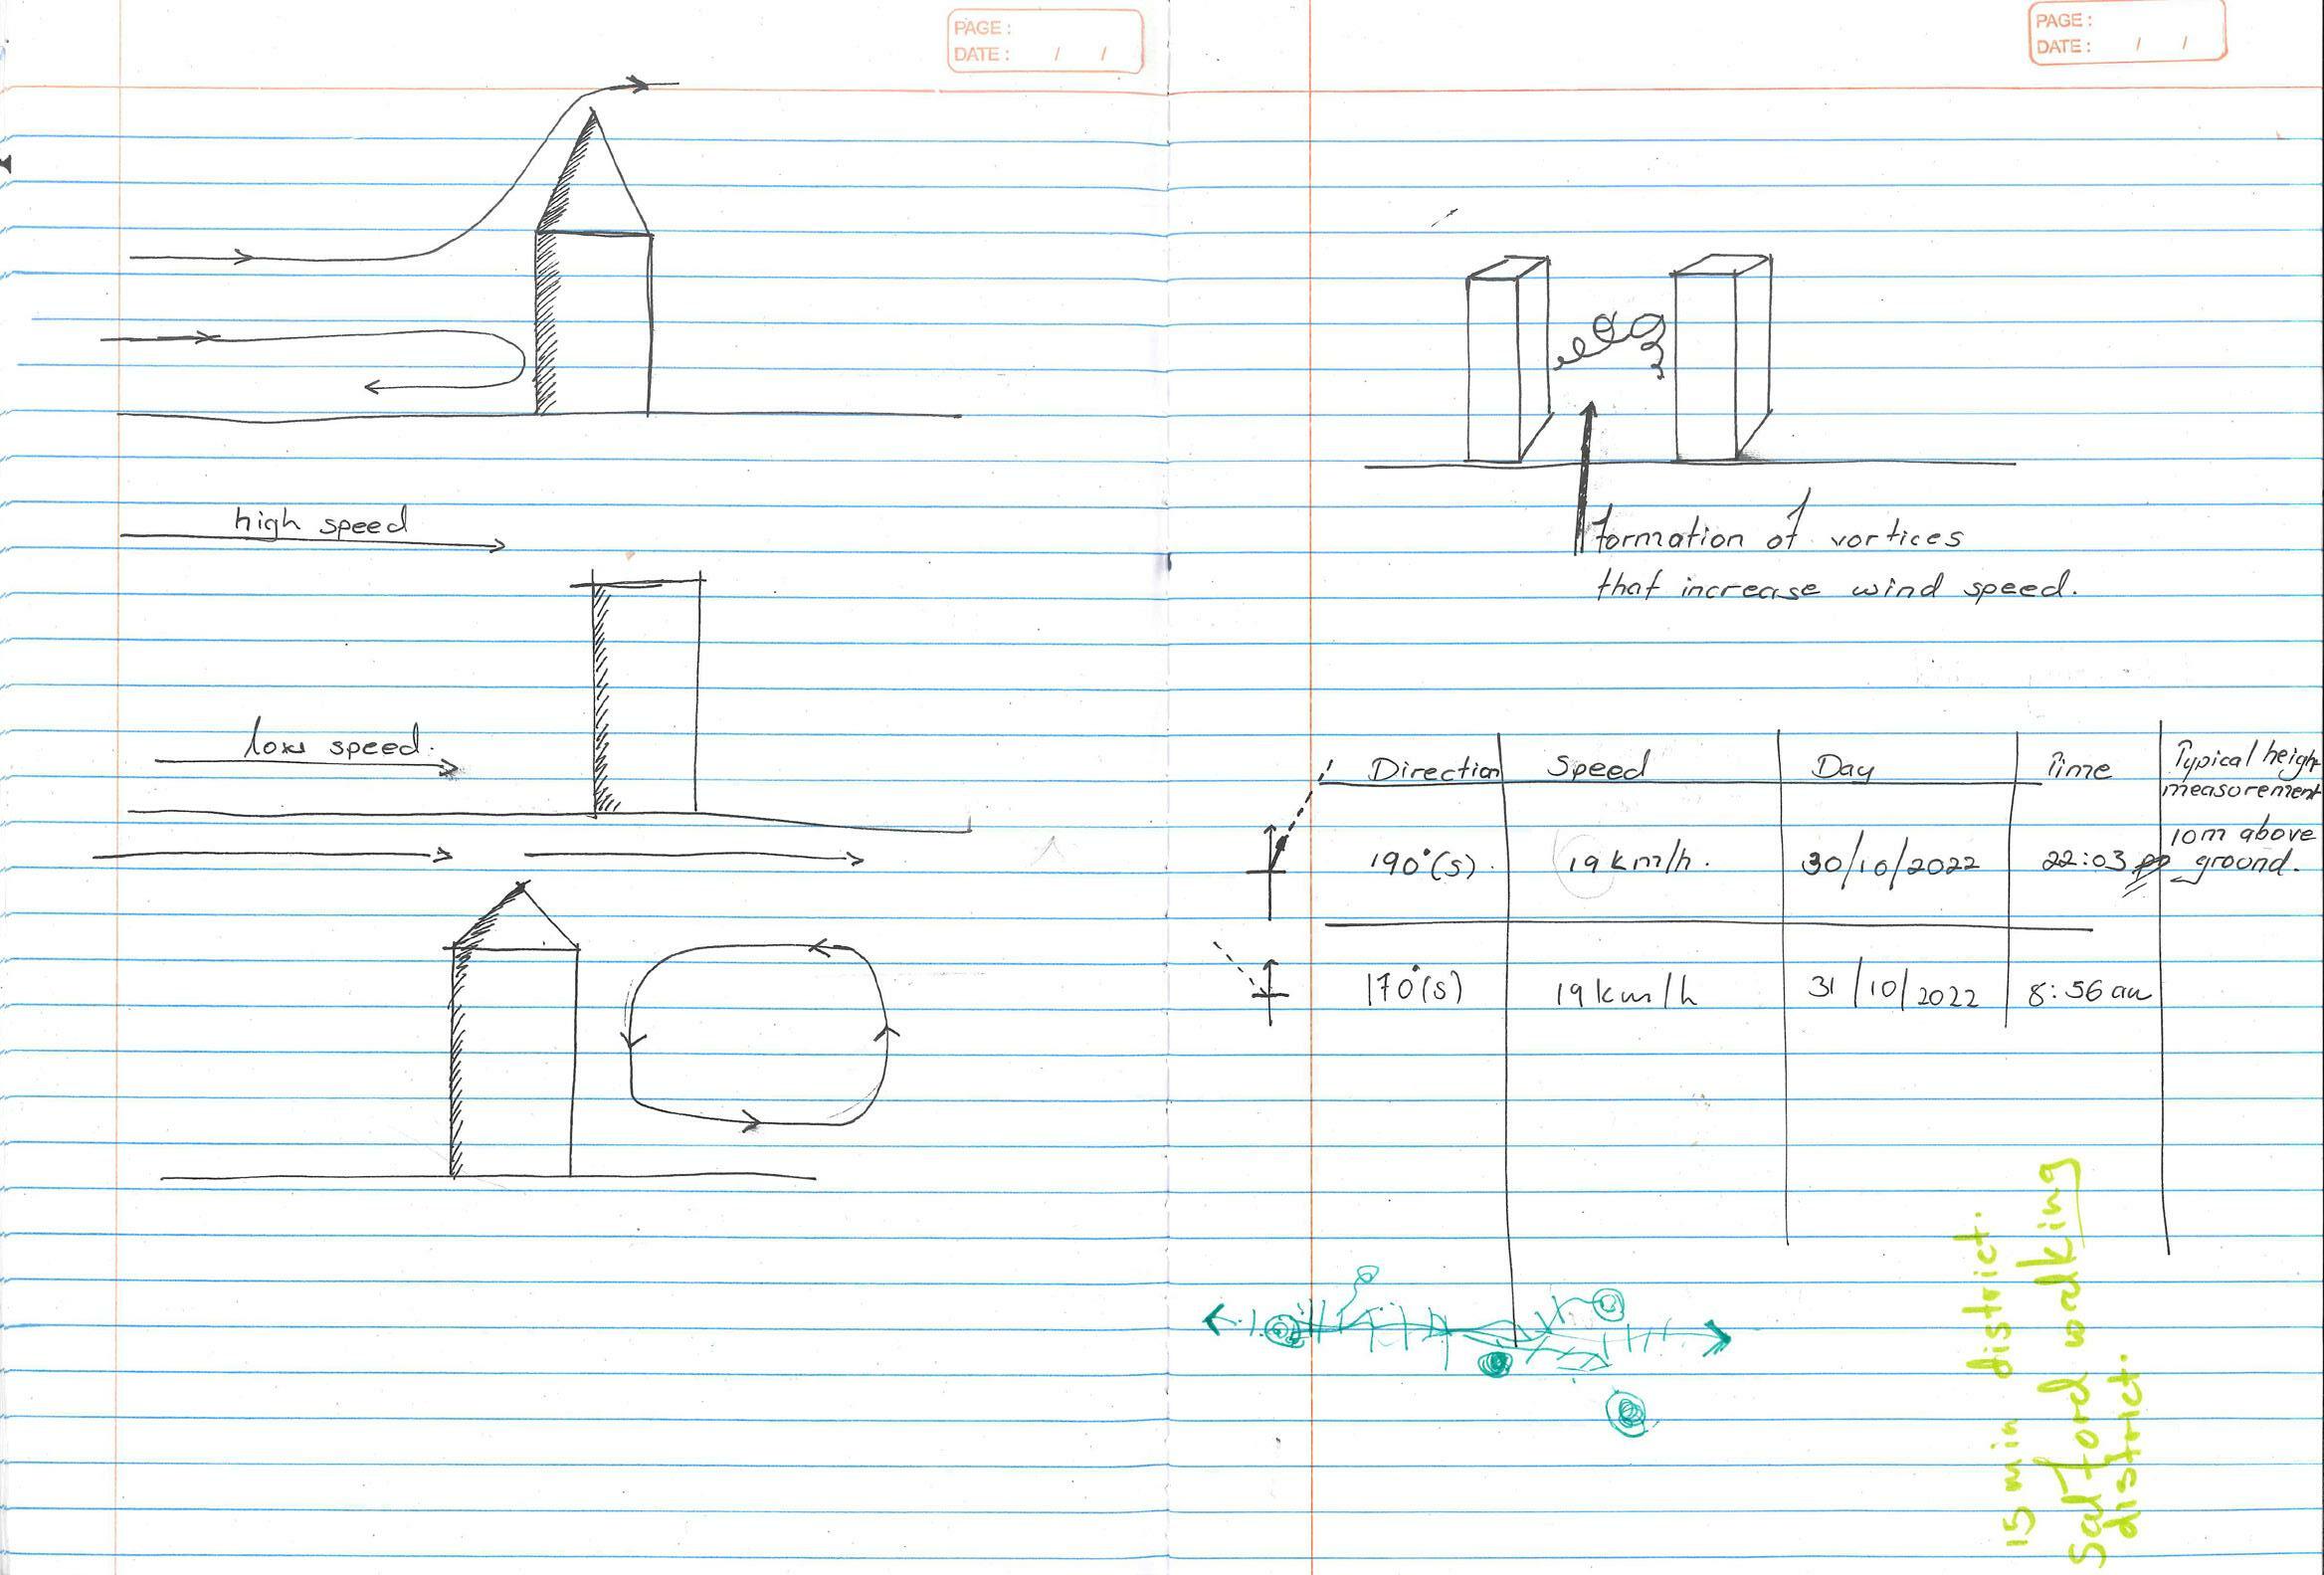 PAGE :
DATE : / /
high speed
low speed.
PAGE :
DATE : / /
formation of vortices
that increase wind speed.
Direction Speed Day Time Typical heigh
measurement
190°(s). 19 km/h. 30/10/2022 22:03 10m above
ground.
170°(s) 19 km/h 31/10/2022 8:56 am
15 min district.
Salford walking
district.